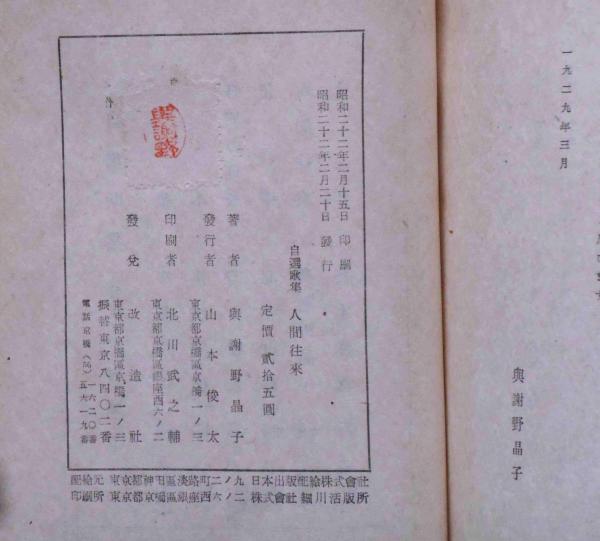 一九二九年三月
與謝野晶子
昭和二十二年二月十五日 印刷
昭和二十二年二月二十日 發行
自選歌集 人間往來
定價 貳拾五圓
著者 與謝野晶子
東京都京橋區京橋一ノ三
發行者 山本俊太
東京都京橋區銀座西六ノ二
印刷者 北川武之輔
東京都京橋區京橋一ノ三
發兌 改造社
振替東京八四〇二番
電話京橋(56) 一六二〇番 五六一九番
與謝野
配給元 東京都神田區淡路町二ノ九 日本出版配給株式會社
印刷所 東京都京橋區銀座西六ノ二 株式會社細川活版所